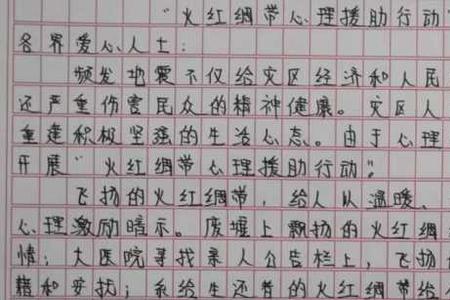 "火红绸带心理援助行动
各界爱心人士:
频发地震不仅给灾区经济和人民
还严重伤害民众的精神健康。灾区人
重建积极坚强的生活心态。由于心理
开展"火红绸带心理援助行动"。
飞扬的火红绸带,给人以温暖、
心理激励暗示。废墟上飘扬的火红绸
情;大医院寻找亲人公告栏上,飞扬
藉和安抚;系给生还者的火红绸带给